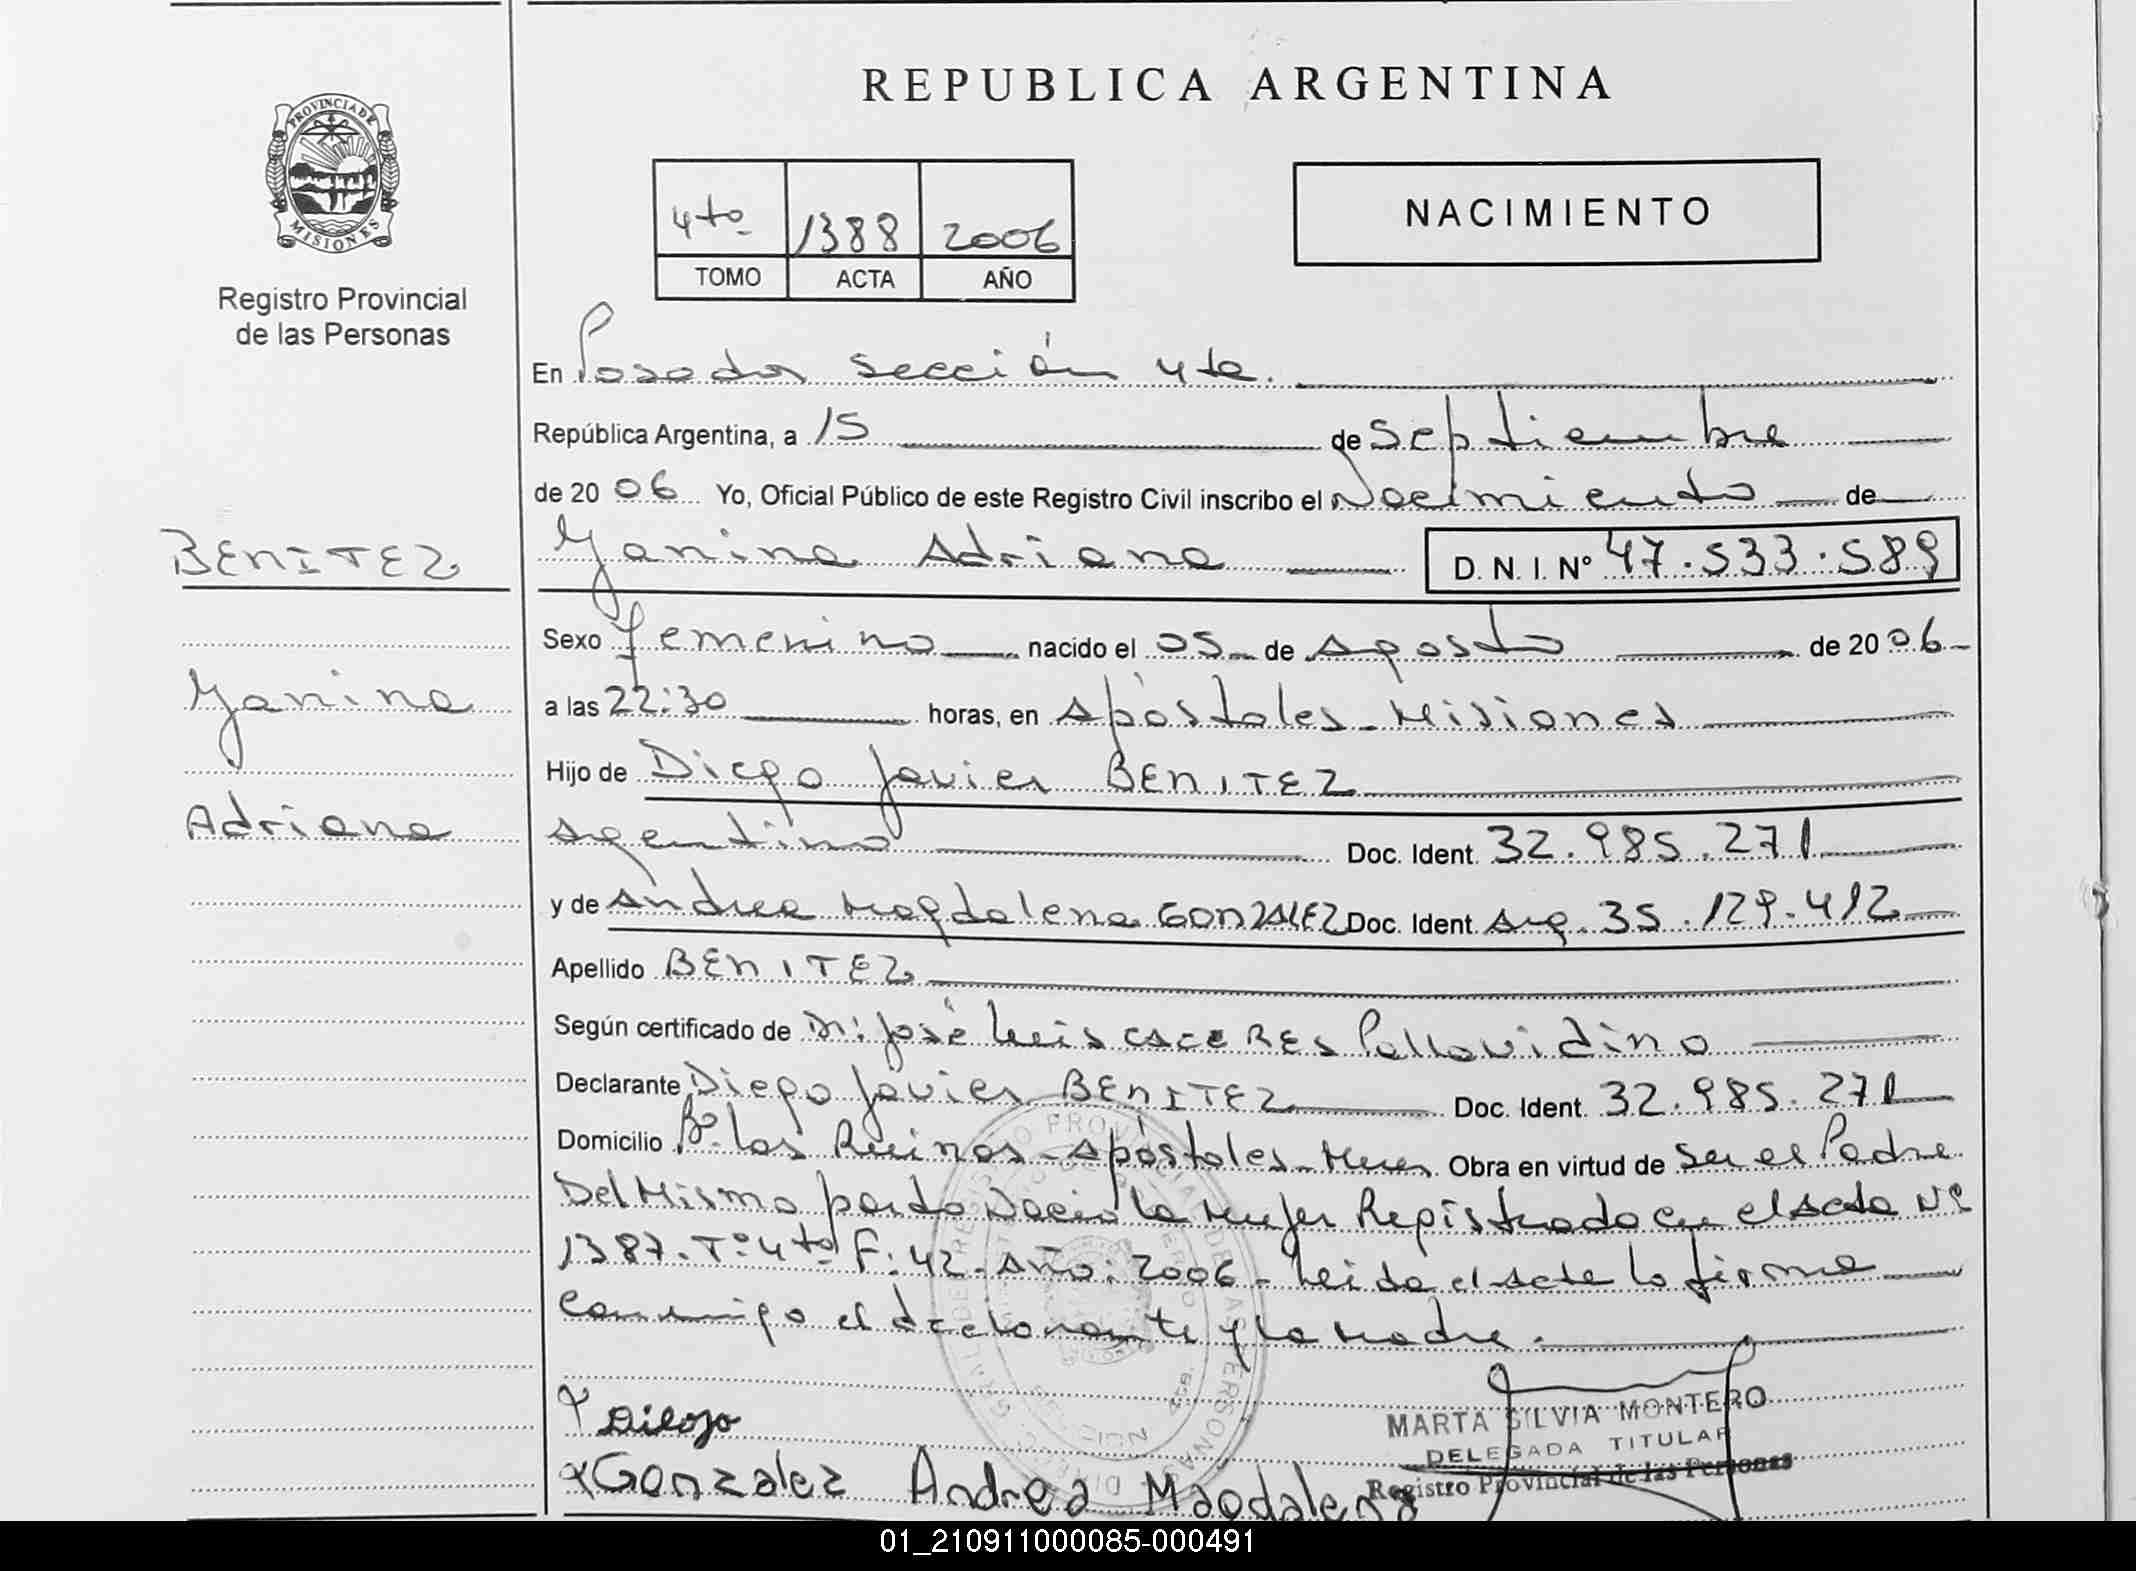 REPUBLICA ARGENTINA
PROVINCIA DE
MISIONES
Registro Provincial
de las Personas
4to 1388 2006
TOMO ACTA AÑO
NACIMIENTO
En Posadas sección 4ta.
República Argentina, a 15 de Septiembre
de 2006 Yo, Oficial Público de este Registro Civil inscribo el Nacimiento de
BENITEZ
Yanina Adriana D. N. I. Nº 47.533.589
Sexo femenino nacido el 05 de Agosto de 2006
Yanina
a las 22:30 horas, en Apóstoles - Misiones
Hijo de Diego Javier BENITEZ
Adriana
Argentino Doc. Ident. 32.985.271
y de Andrea Magdalena GONZALEZ Doc. Ident. Arg. 35.129.412
Apellido BENITEZ
Según certificado de Dr: José Luis CACERES Pallavidino
Declarante Diego Javier BENITEZ Doc. Ident. 32.985.271
Domicilio Bº. las Ruinas - Apóstoles - Mnes. Obra en virtud de ser el Padre
Del Mismo parto Nació la mujer Registrada en el Acta Nº
1387. Tº: 4to F: 42. Año: 2006 - Leida el Acta la firma
Conmigo el declarante y la madre.
Diego
MARTA SILVIA MONTERO
DELEGADA TITULAR
Registro Provincial de las Personas
Gonzalez Andrea Magdalena
01_210911000085-000491